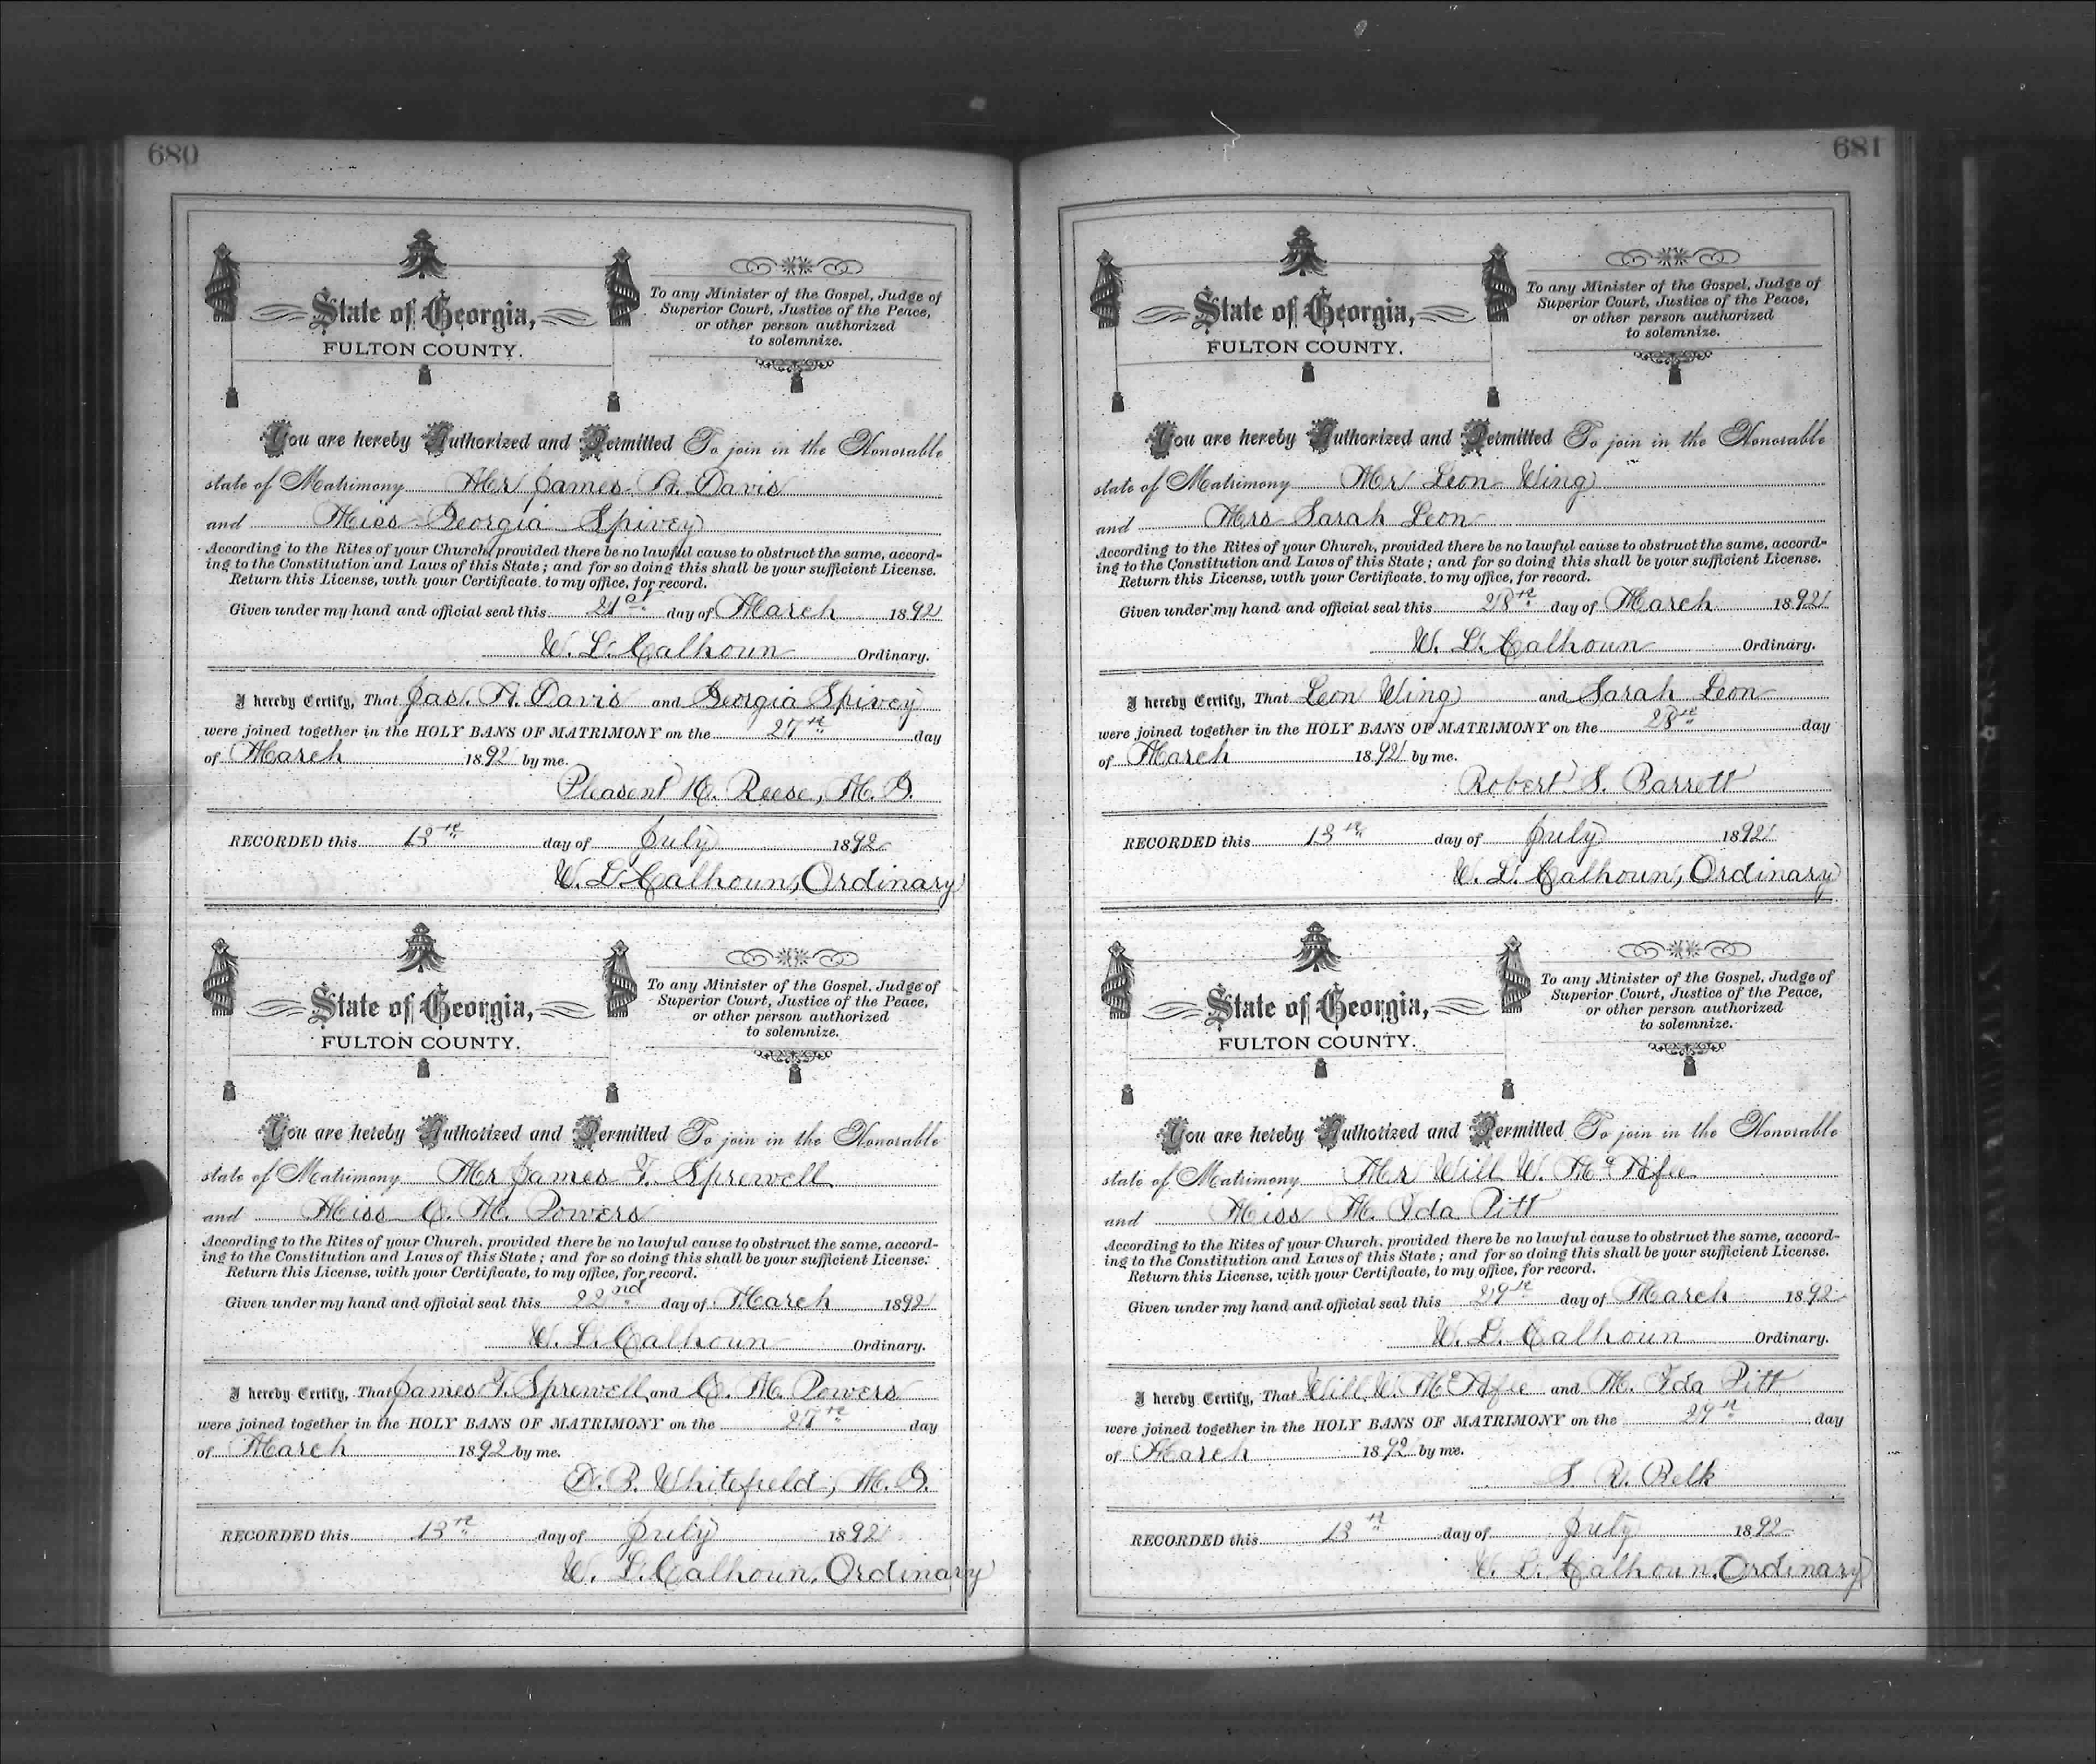 680
State of Georgia,
FULTON COUNTY.
To any Minister of the Gospel, Judge of
Superior Court, Justice of the Peace,
or other person authorized
to solemnize.
You are hereby Authorized and Permitted To join in the Honorable
state of Matrimony Mr James A. Davis
and Miss Georgia Spivey
According to the Rites of your Church, provided there be no lawful cause to obstruct the same, accord-
ing to the Constitution and Laws of this State; and for so doing this shall be your sufficient License.
Return this License, with your Certificate, to my office, for record.
Given under my hand and official seal this 21st day of March 1892
W. L. Calhoun Ordinary.
I hereby Certify, That Jas. A. Davis and Georgia Spivey
were joined together in the HOLY BANS OF MATRIMONY on the 27th day
of March 1892 by me.
Pleasent H. Reese, M. G.
RECORDED this 13th day of July 1892
W. L. Calhoun, Ordinary
State of Georgia,
FULTON COUNTY.
To any Minister of the Gospel, Judge of
Superior Court, Justice of the Peace,
or other person authorized
to solemnize.
You are hereby Authorized and Permitted To join in the Honorable
state of Matrimony Mr James T. Sprewell
and Miss O. M. Powers
According to the Rites of your Church, provided there be no lawful cause to obstruct the same, accord-
ing to the Constitution and Laws of this State; and for so doing this shall be your sufficient License.
Return this License, with your Certificate, to my office, for record.
Given under my hand and official seal this 22nd day of March 1892
W. L. Calhoun Ordinary.
I hereby Certify, That James T. Sprewell and O. M. Powers
were joined together in the HOLY BANS OF MATRIMONY on the 27th day
of March 1892 by me.
B. Whitefield, M. G.
RECORDED this 13th day of July 1892
W. L. Calhoun, Ordinary
681
State of Georgia,
FULTON COUNTY.
To any Minister of the Gospel, Judge of
Superior Court, Justice of the Peace,
or other person authorized
to solemnize.
You are hereby Authorized and Permitted To join in the Honorable
state of Matrimony Mr Leon Wing
and Mrs Sarah Leon
According to the Rites of your Church, provided there be no lawful cause to obstruct the same, accord-
ing to the Constitution and Laws of this State; and for so doing this shall be your sufficient License.
Return this License, with your Certificate, to my office, for record.
Given under my hand and official seal this 28th day of March 1892
W. L. Calhoun Ordinary.
I hereby Certify, That Leon Wing and Sarah Leon
were joined together in the HOLY BANS OF MATRIMONY on the 28th day
of March 1892 by me.
Robert S. Barrett
RECORDED this 13th day of July 1892
W. L. Calhoun, Ordinary
State of Georgia,
FULTON COUNTY.
To any Minister of the Gospel, Judge of
Superior Court, Justice of the Peace,
or other person authorized
to solemnize.
You are hereby Authorized and Permitted To join in the Honorable
state of Matrimony Mr Will W. McAfee
and Miss M. Ida Pitt
According to the Rites of your Church, provided there be no lawful cause to obstruct the same, accord-
ing to the Constitution and Laws of this State; and for so doing this shall be your sufficient License.
Return this License, with your Certificate, to my office, for record.
Given under my hand and official seal this 29th day of March 1892
W. L. Calhoun Ordinary.
I hereby Certify, That Will W. McAfee and M. Ida Pitt
were joined together in the HOLY BANS OF MATRIMONY on the 29th day
of March 1892 by me.
S. R. Belk
RECORDED this 13th day of July 1892
W. L. Calhoun, Ordinary